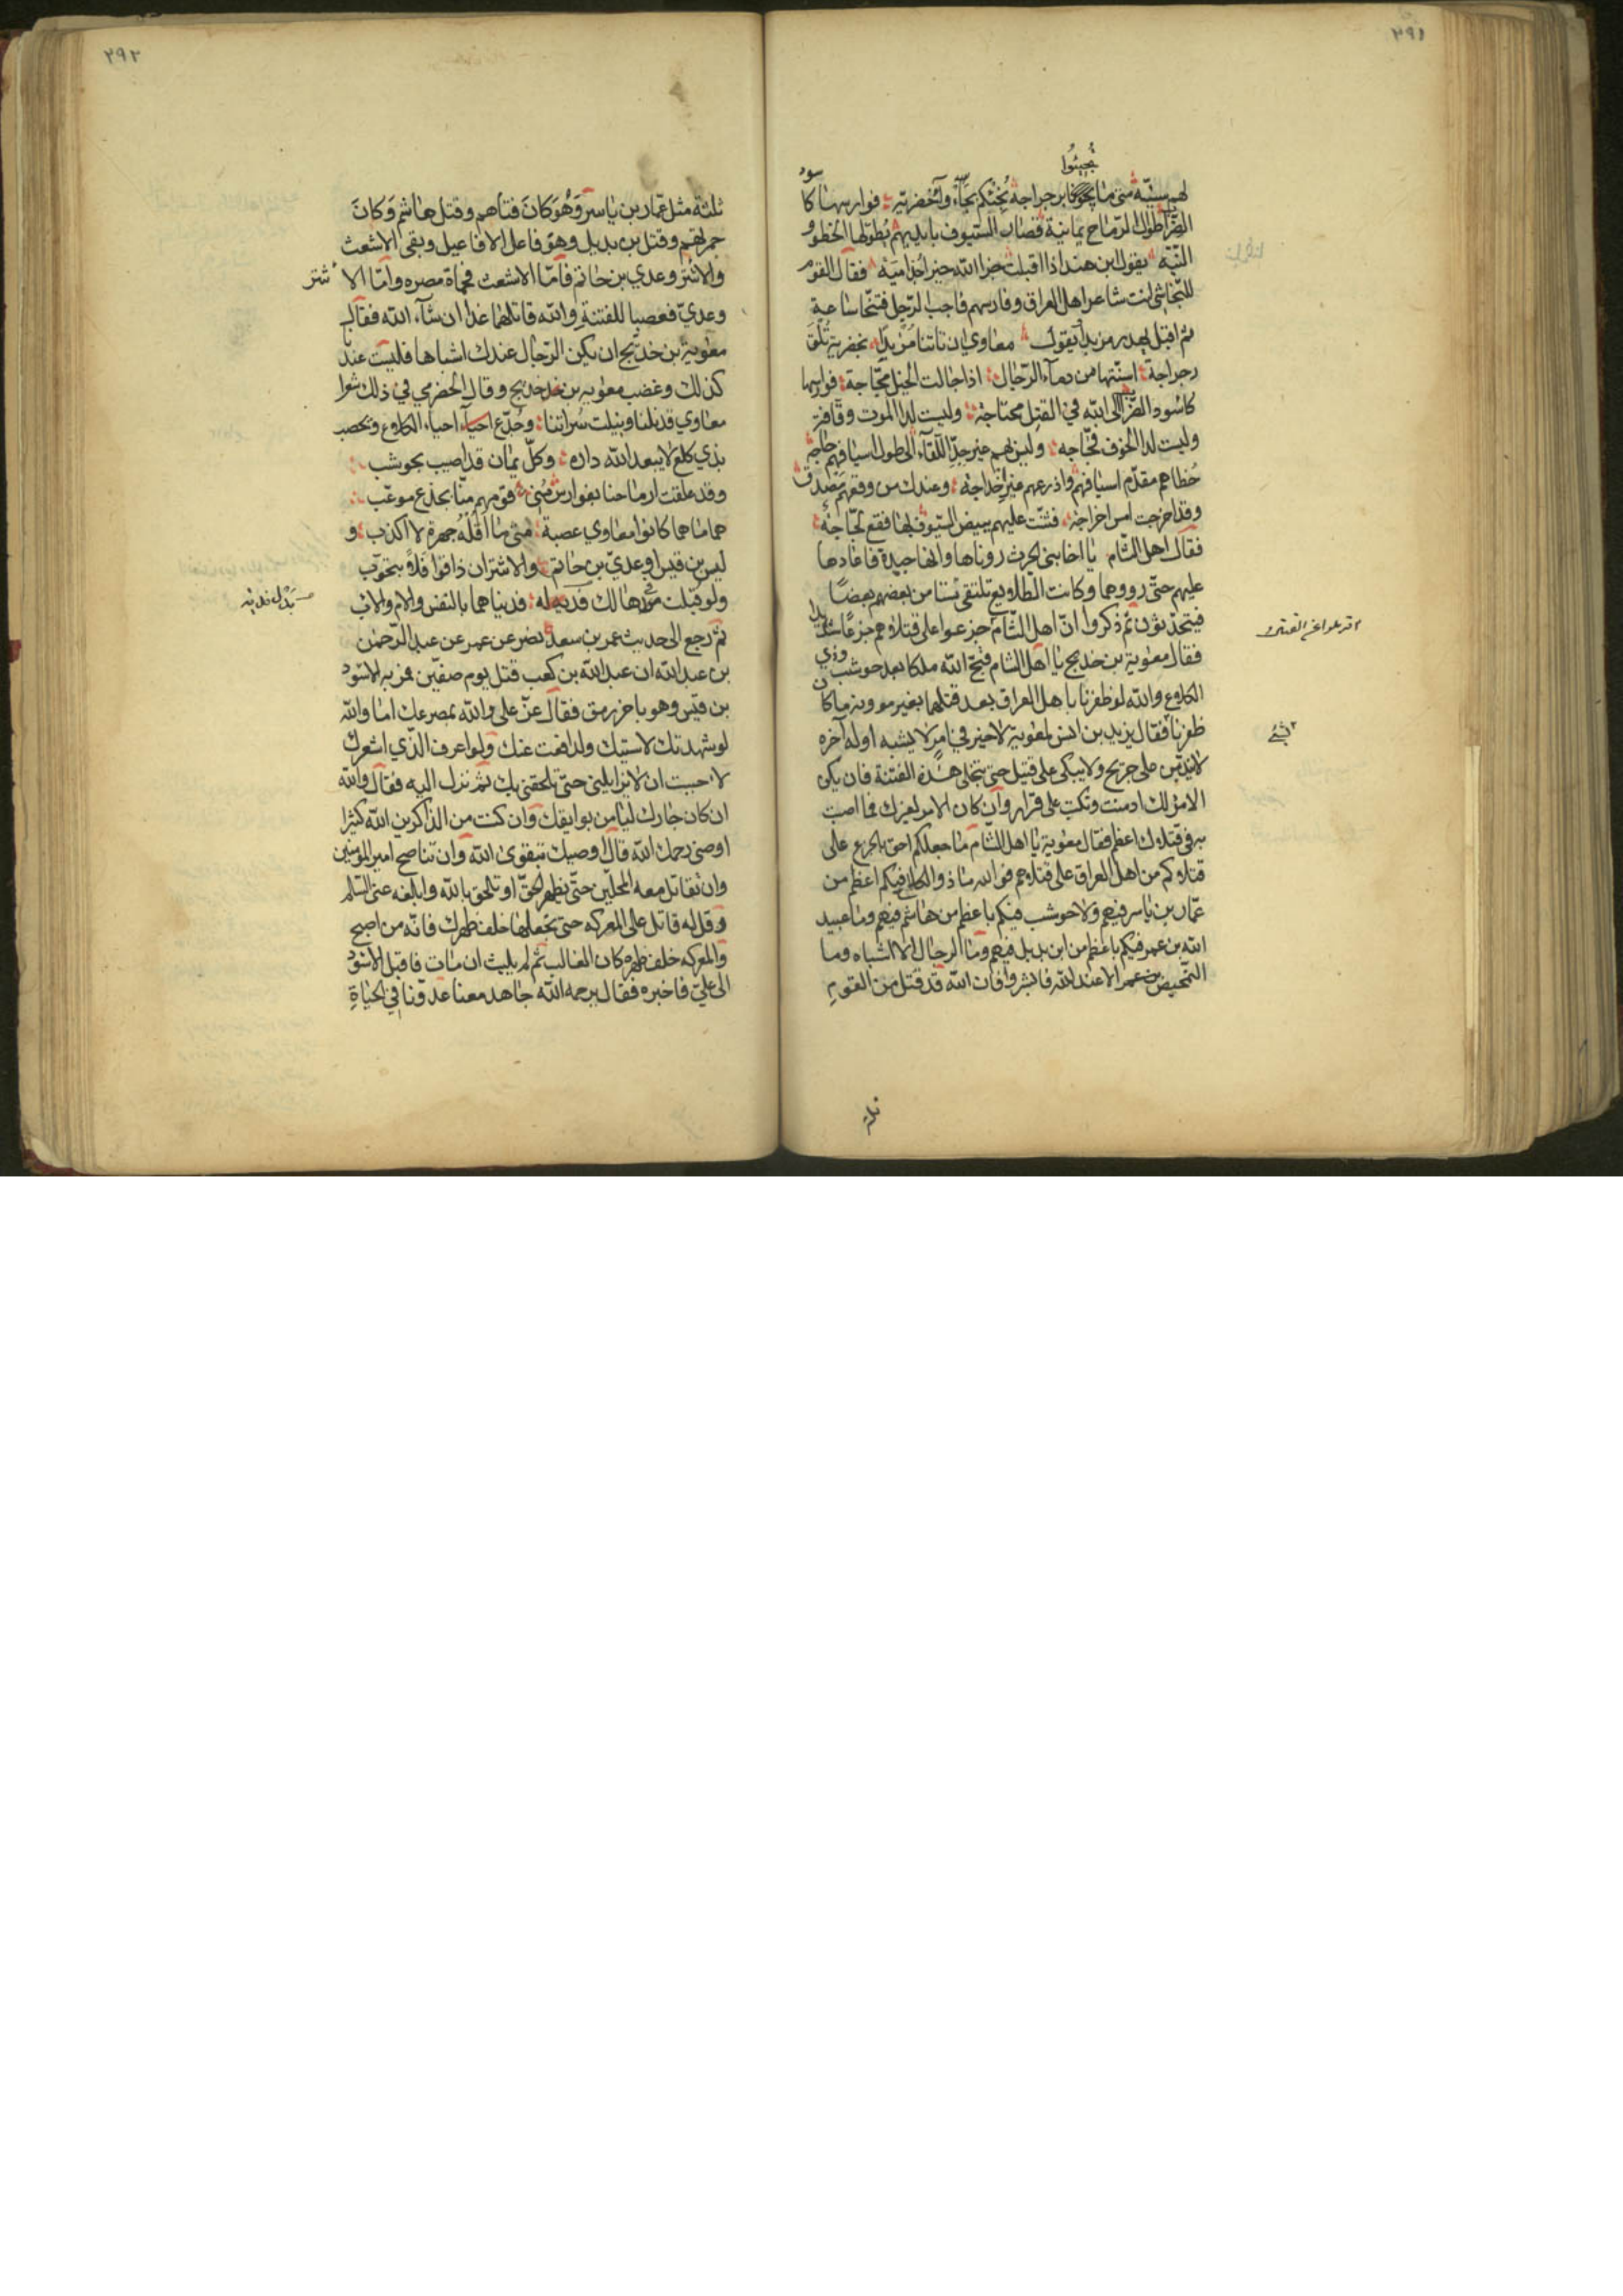 ٢٩١
لهم بسيّة متى ما يجيئوا برجراجة
الضراب طوال الرماح يمانية قضاب السيوف بايديهم يطولها الخطو و
النيّه يقول ابن هند اذا اقبلت جزا الله خيرا جذاميه فقال القوم
للنجاشى انت شاعر اهل العراق وفارسهم فاجب الرجل فتنحّا ساعية
ثم اقبل يهدر مزبدا يقول معاوي ان تاتنا مزبدا بخضرية تلق
رجراجة اسنتها من دماء الرجال اذا جالت الخيل مجّاجة فوارسها
كاسود الضراب الى الله في القتل محتاجة وليست لدا الموت وقافة
وليست لدا الخوف فجاجه وليس بهم غير جدّ اللقاء الى طول اسيافهم حاجة
خطاهم مقدّم اسيافهم واذرعهم غير خداجة وعندك من وقعهم مصدق
وقد اخرجت امس اخراجة فشنّت عليهم ببيض السيوف بها فقع لجّاجة
فقال اهل الشام يا اخا بنى الحرث روناها وانها جيدة فاعادها
عليهم حتى رووها وكانت الطلايع تلتقى يستامن بعضهم بعضا
فيتحدّثون ثم ذكروا انّ اهل الشام جزعوا على قتلاهم جزعا شديدا
فقال معوية بن خديج يا اهل الشام قبّح الله ملكا بعد حوشب وذي
الكلاع والله لو ظفرنا باهل العراق بعد قتلهما بغير موونة ما كان
ظفرنا فقال يزيد بن انس لمعوية لا خير في امر لا يشبه اوله آخره
لا يدمن على جريح ولا يبكى على قتيل حتى تنجلى هذه الفتنة فان يكن
الامر لك ادمنت وبكيت على قرار وان كان الامر لغيرك فما اصبت
به في قتلاك اعظم فقال معوية يا اهل الشام ما جعلكم احق بالجزع على
قتلاكم من اهل العراق على قتلاهم فوالله ما ذو الكلاع فيكم اعظم من
عمّار بن ياسر فيهم ولا حوشب فيكم باعظم من هاشم فيهم وما عبيد
الله بن عمر فيكم باعظم من ابن بديل فيهم وما الرجال الا اشباه وما
التمحيص الا من عند الله فابشروا فان الله قد قتل من القوم
ثلثة
٢٩٢
ثلثة مثل عمّار بن ياسر وهو كان فتاهم وقتل هاشم وكان
جمرتهم وقتل بن بديل وهو فاعل الافاعيل وبقى الاشعث
والاشتر وعدي بن حاتم فامّا الاشعث فحماة مصره وامّا الاشتر
وعديّ فغصبا للفتنة والله قاتلهما غدا ان شآء الله فقال
معوية بن خديج ان يكن الرّجال عندك اشباها فليست عندنا
كذلك وغضب معويه بن خديج وقال الحضرمي في ذلك شعرا
معاوي قد نلنا ونيلت سراتنا وجدّع احياء الكلاع ويحصب
بذي كلع لا يبعد الله داره وكلّ يمان قد اصيب بحوشب
هما ما هما كانوا معاوي عصمة متى ما اقله جهرة لا اكذب و
ولو قبلت في هالك فدية له فديناهما بالنفس والام والاب
ثم رجع الى حديث عمر بن سعد نصر عن عمر عن عبد الرحمن
بن عبد الله ان عبد الله بن كعب قتل يوم صفّين فمر به الاسود
بن قيس وهو باخر رمق فقال عزّ على والله بمصرعك اما والله
لو شهدتك لاسيتك ولدافعت عنك ولو اعرف الذي اشعرك
لاحببت ان لا يزايلنى حتى تلحقنى بك ثم نزل اليه فقال والله
ان كان جارك ليامن بوايقك وان كنت من الذاكرين الله كثيرا
اوصنى رحمك الله قال اوصيك بتقوى الله وان تناصح امير المومنين
وان تقاتل معه المحلّين حتى يظهر الحقّ او تلحق بالله وابلغه عنى السّلم
وقل له قاتل على المعركه حتى تجعلها خلف ظهرك فانّه من اصبح
والمعركه خلف ظهره كان الغالب ثم لم يلبث ان مات فاقبل الاسود
الى عليّ فاخبره فقال يرحمه الله جاهد معنا عدوّنا في الحياة